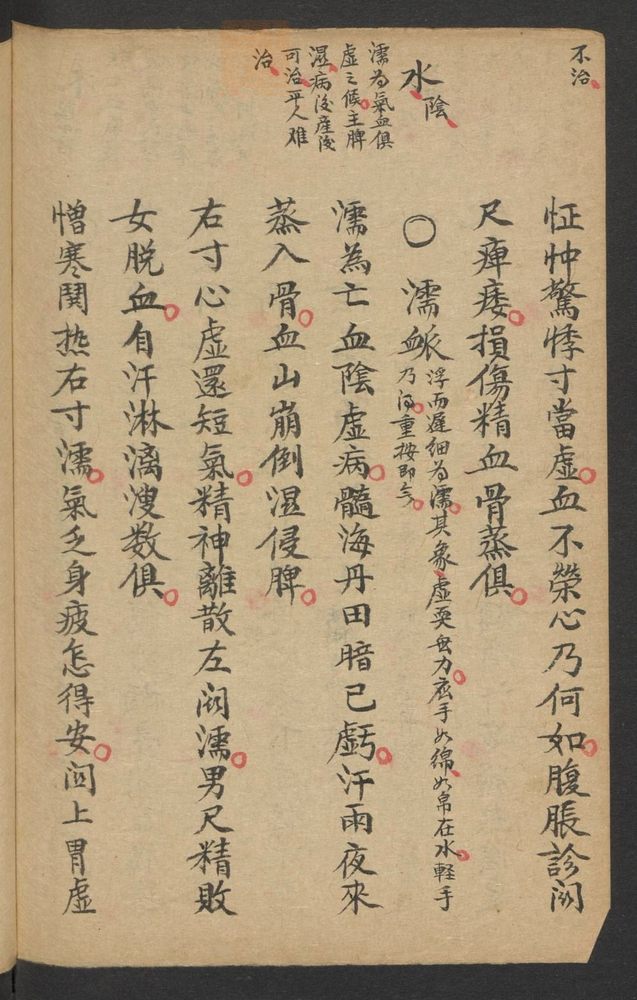 不治
怔忡驚悸寸當虛血不榮心乃何如腹脹診関
尺痺痿損傷精血骨蒸俱
水陰
濡为氣血俱
虛之候主脾
濕病後産後
可治平人难
治
〇濡脈浮而遲细为濡其象虛耎無力应手如绵如帛在水輕手
乃得重按即無
濡為亡血陰虛病髓海丹田暗已虧汗雨夜來
蒸入骨血山崩倒濕侵脾
右寸心虛還短氣精神離散左関濡男尺精敗
女脱血自汗淋漓溲数俱
憎寒関热右寸濡氣乏身疲怎得安関上胃虛